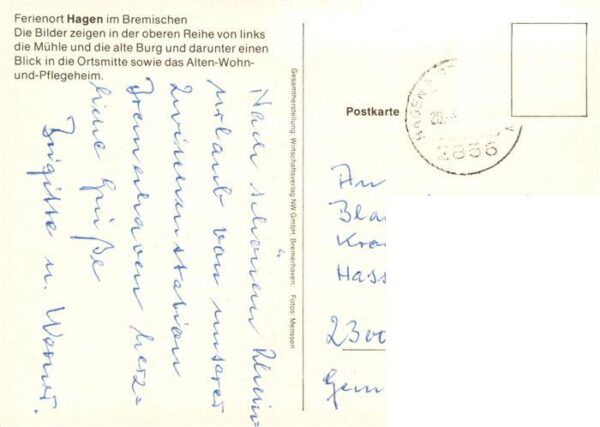 Ferienort Hagen im Bremischen
Die Bilder zeigen in der oberen Reihe von links
die Mühle und die alte Burg und darunter einen
Blick in die Ortsmitte sowie das Alten-Wohn-
und-Pflegeheim.
Nach schönem Rhein-
urlaub von unserer
Zwischenstation
Bremerhaven herz-
liche Grüße
Brigitte u. Werner.
Gesamtherstellung: Wirtschaftsverlag NW GmbH, Bremerhaven; Fotos: Menssen
Postkarte
HAGEN
20.
2856
An
Bla
Kra
Hass
2300
Gem